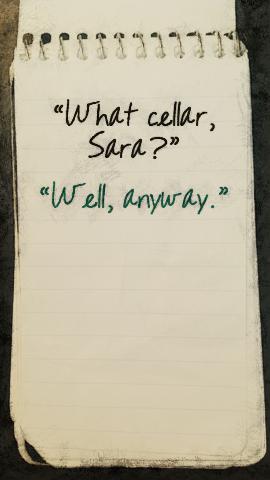 “What cellar,
Sara?”
“Well, anyway.”